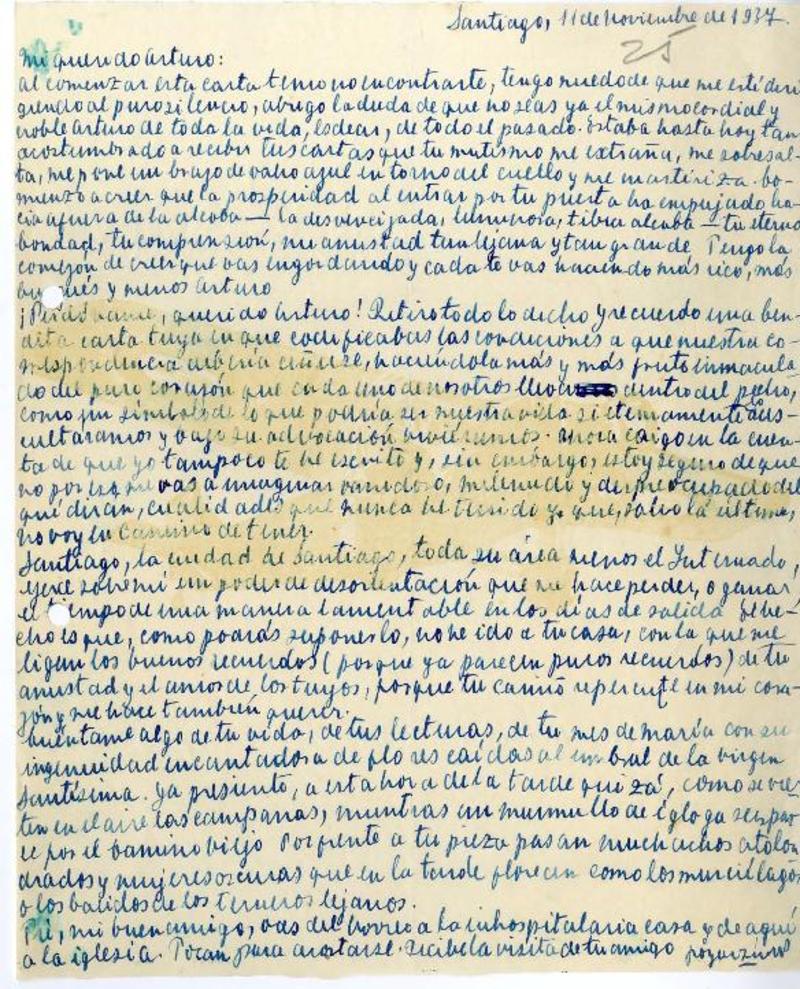 Santiago, 11 de noviembre de 1937.
25
Mi querido Arturo:
al comenzar esta carta temo no encontrarte, tengo miedo de que me esté diri
giendo al puro silencio, abrigo la duda de que no seas ya el mismo cordial y
noble Arturo de toda la vida, es decir, de todo el pasado. Estaba hasta hoy tan
acostumbrado a recibir tus cartas que tu mutismo me extraña, me sobresal-
ta, me pone un brajo de vaho azul en torno del cuello y me martiriza. Co-
mienzo a creer que la prosperidad al entrar por tu puerta ha empujado ha-
cia afuera de la alcoba — la desvencijada, lumurosa, tibia alcoba — tu eterna
bondad, tu comprensión, mi amistad tan lejana y tan grande. Tengo la
comejón de creer que vas engordando y cada te vas haciendo más rico, más
burgués y menos Arturo
¡Perdóname, querido Arturo! Retiro todo lo dicho y recuerdo una ben-
dita carta tuya en que codificabas las condiciones a que nuestra co-
rrespondencia debería ceñirse, haciéndola más y más fruto inmacula
do del puro corazón que cada uno de nosotros lleva dentro del pecho,
como un símbolo de lo que podría ser nuestra vida si eternamente aus-
cultáramos y bajo su advocación viviéramos. Ahora caigo en la cuen-
ta de que yo tampoco te he escrito y, sin embargo, estoy seguro de que
no por eso me vas a imaginar vanidoso, melenudo y despreocupado del
qué dirán, cualidades que nunca he tenido y que, salvo la última,
no voy en camino de tener.
Santiago, la ciudad de Santiago, toda su área menos el Internado,
ejerce sobre mí un poder de desorientación que me hace perder, o ganar
el tiempo de una manera lamentable en los días de salida. El he-
cho es que, como podrás suponerlo, no he ido a tu casa, con la que me
ligan los buenos recuerdos (porque ya parecen puros recuerdos) de tu
amistad y el amor de los tuyos, porque tu cariño repercute en mi cora-
zón y me hace también querer.
Cuéntame algo de tu vida, de tus lecturas, de tu mes de maría con su
ingenuidad encantadora de flores caídas al umbral de la virgen
Santísima. Ya presiento, a esta hora de la tarde quizá, como se vier
ten en el aire las campanas, mientras un murmullo de égloga se espar
ce por el Camino Viejo. Por frente a tu pieza pasan muchachos atolon
drados y mujeres oscuras que en la tarde florecen como los murciélagos
o los balidos de los terneros lejanos.
mi buen amigo, vas del correo a la inhospitalaria casa y de aquí
a la iglesia. Tocan para acostarse. Recibe la visita de tu amigo